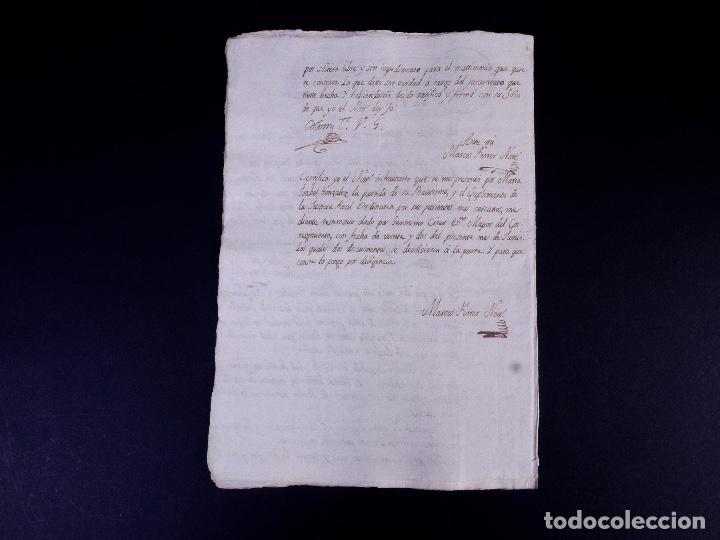 por soltero libre y sin impedimento para el matrimonio que quie
re contraer. Lo que dixo ser verdad a cargo del juramento que
tiene hecho. Y habiendosele leido ratificó y firmó con su Sria
de que yo el Not. doy fe.
Colomy Te. V. G.
Ante mi
Marcos Ferrer Not.
Certifico yo el Not. infrascrito que se me presentó por Maria
Isabel Gonzalez la partida de su Bautismo, y el Suplemento de
la Justicia Real Ordinaria por sus parientes mas cercanos, me
diante testimonio dado por Geronimo Cover Es.no Mayor del Cor
regimiento, con fecha de veinte y dos del presente mes de Junio.
Los quales dos documentos se devolvieron á la parte. Y para que
conste lo pongo por diligencia.
Marcos Ferrer Not.
todocoleccion